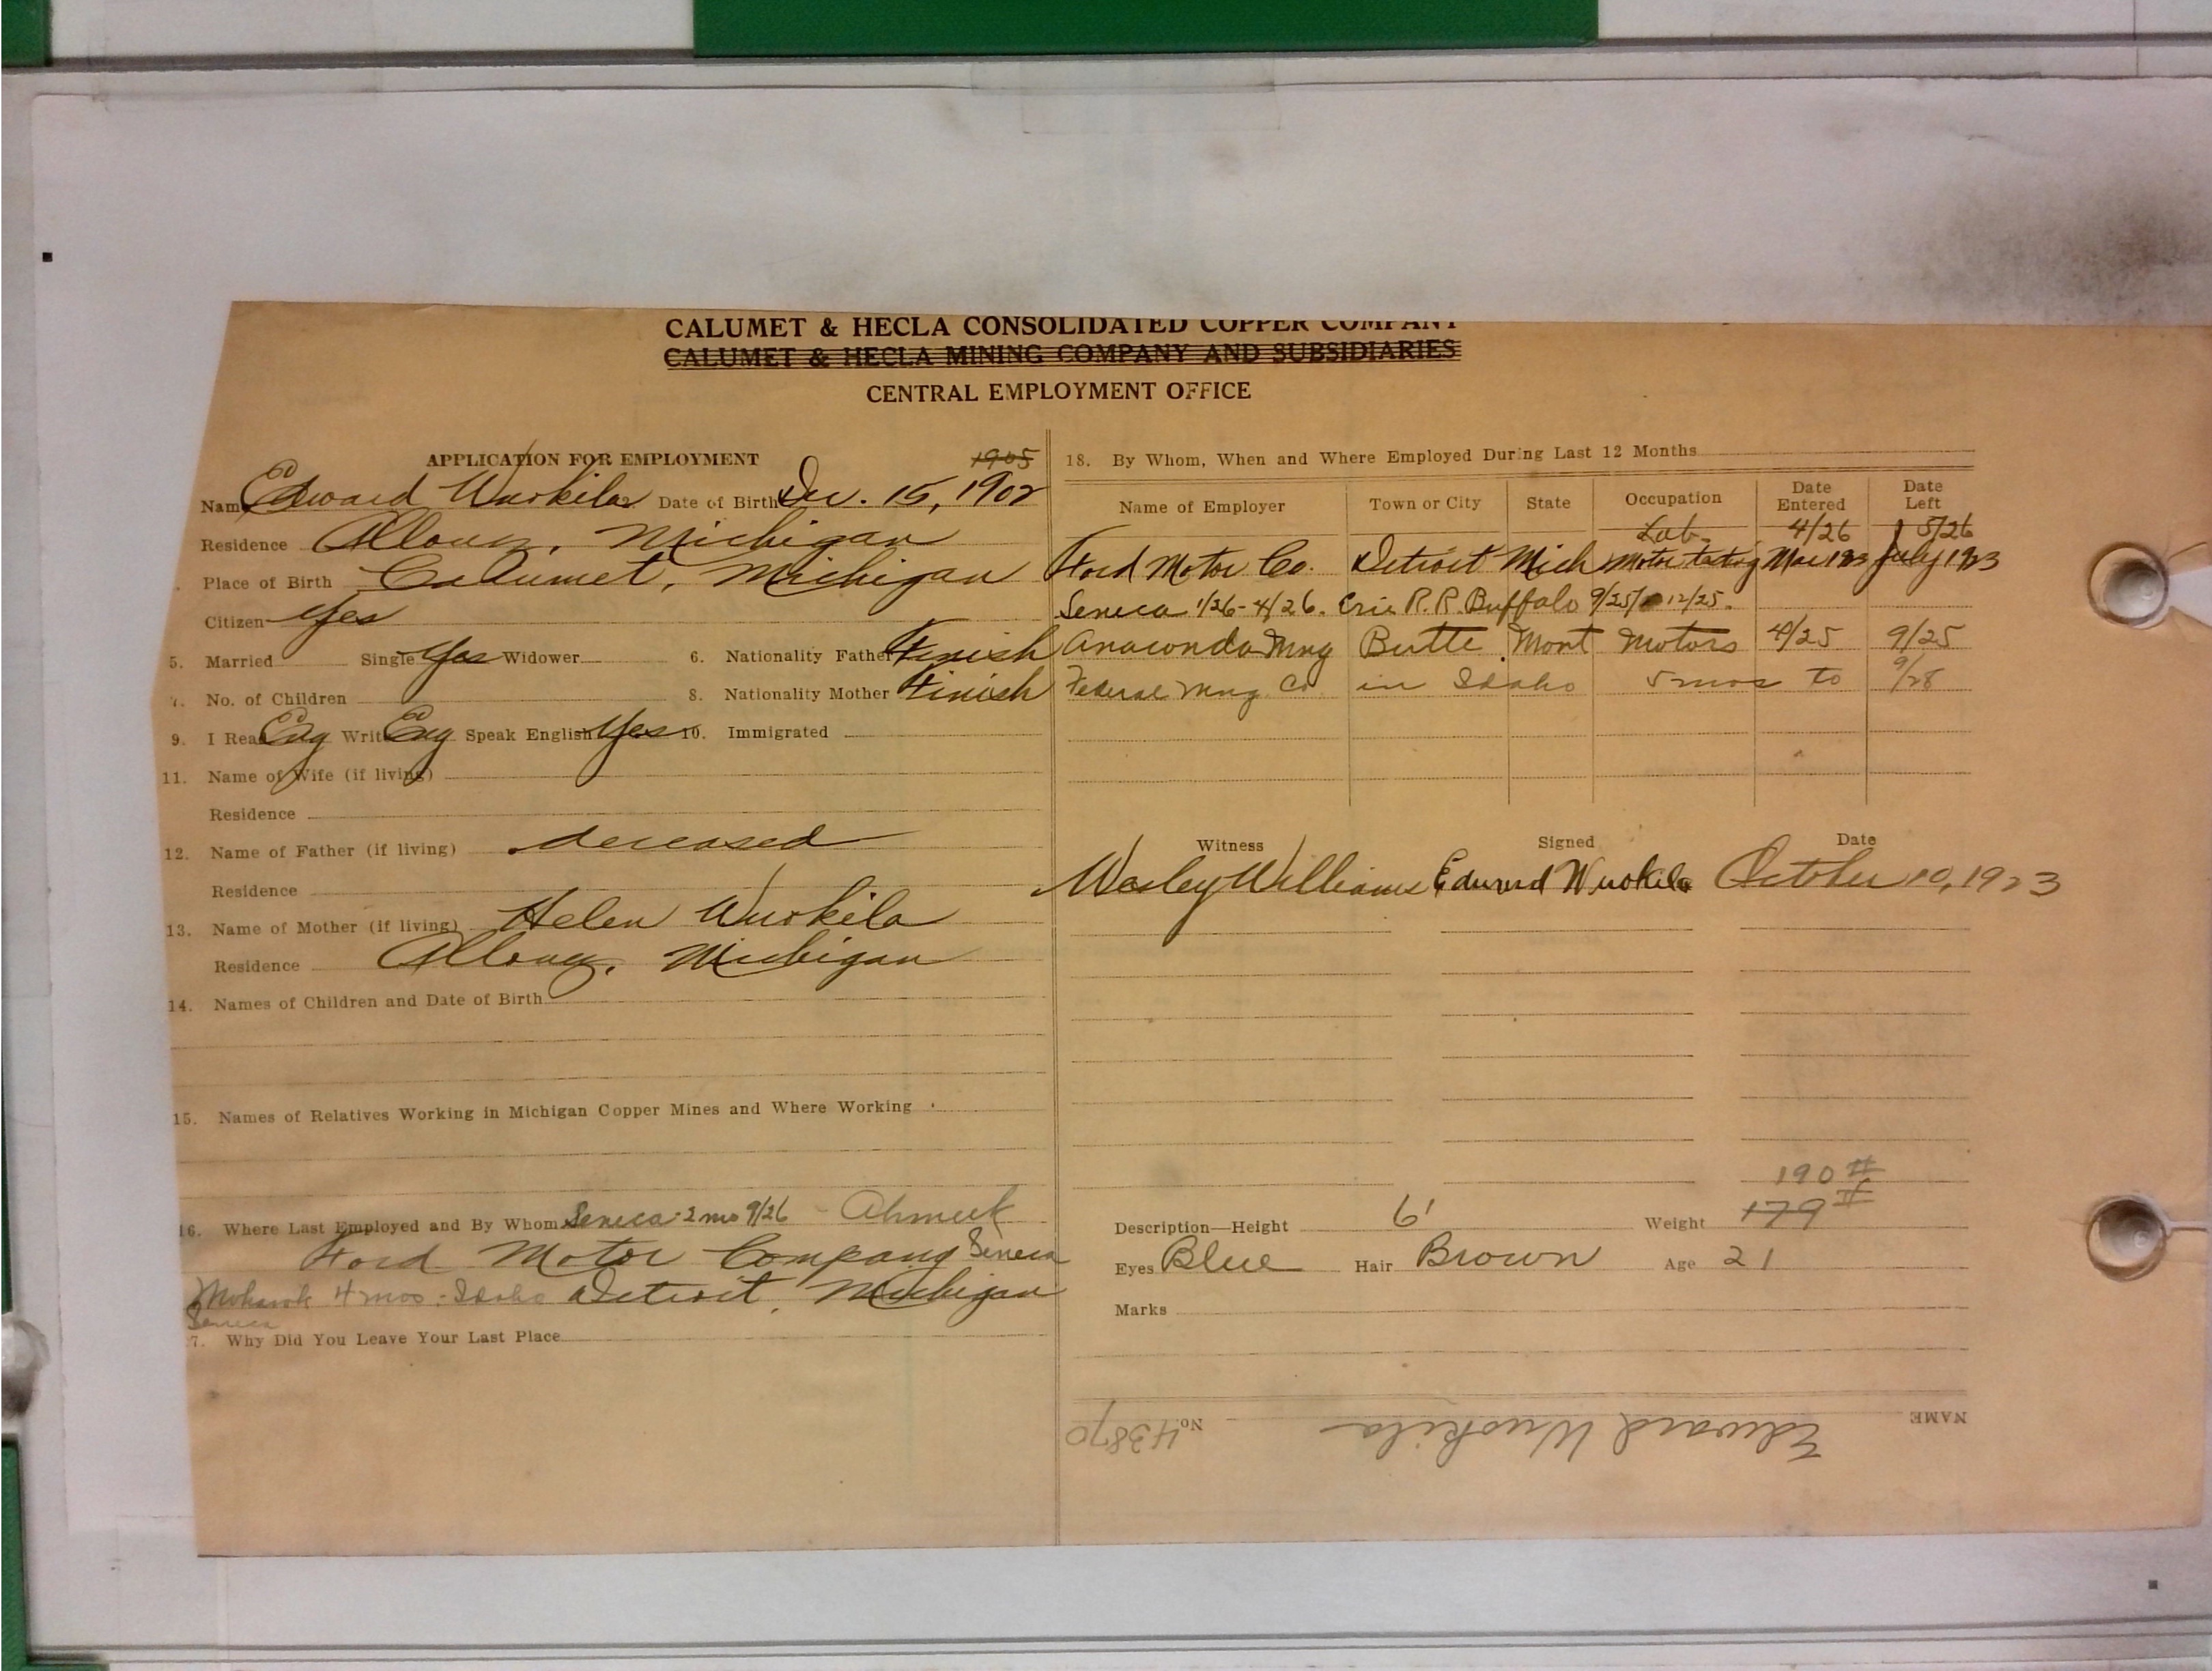 CALUMET & HECLA CONSOLIDATED COPPER COMPANY
CALUMET & HECLA MINING COMPANY AND SUBSIDIARIES
CENTRAL EMPLOYMENT OFFICE
APPLICATION FOR EMPLOYMENT
1905
Name Edward Wuokila Date of Birth Dec. 15, 1902
Residence Allouez, Michigan
Place of Birth Calumet, Michigan
Citizen Yes
5. Married Single Yes Widower 6. Nationality Father Finish
7. No. of Children 8. Nationality Mother Finish
9. I Read Eng Write Eng Speak English Yes 10. Immigrated
11. Name of Wife (if living)
Residence
12. Name of Father (if living) deceased
Residence
13. Name of Mother (if living) Helen Wuokila
Residence Allouez, Michigan
14. Names of Children and Date of Birth
15. Names of Relatives Working in Michigan Copper Mines and Where Working
16. Where Last Employed and By Whom Seneca-2 mo 9/26 - Ahmeek
Ford Motor Company Seneca
Mohawk 4 mos - Idaho Detroit, Michigan
Seneca
17. Why Did You Leave Your Last Place
18. By Whom, When and Where Employed During Last 12 Months
Name of Employer Town or City State Occupation Date Entered Date Left
Lab. 4/26 5/26
Ford Motor Co. Detroit Mich Motor testing Mar 1923 July 1923
Seneca 1/26-4/26. Erie R.R. Buffalo 9/25 12/25.
Anaconda Mng Butte Mont Motors 4/25 9/25
Federal Mng Co in Idaho 5 mos to 9/28
Witness Signed Date
Wesley Williams Edward Wuokila October 10, 1923
190 #
Description—Height 6' Weight 179 #
Eyes Blue Hair Brown Age 21
Marks
NAME Edward Wuokila No. 43870